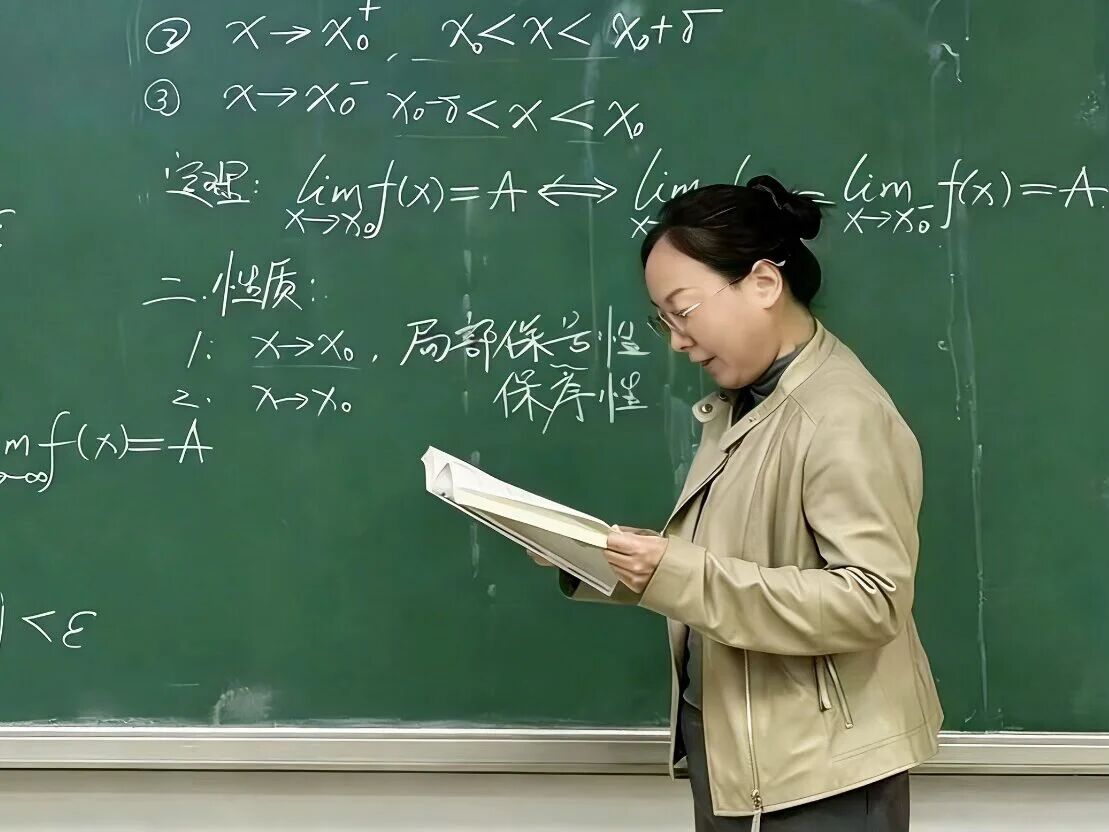 ② x→x₀⁺, x₀<x<x₀+δ
③ x→x₀⁻ x₀-δ<x<x₀
定理: lim x→x₀ f(x)=A ⟺ lim = lim x→x₀⁻ f(x)=A.
二.性质:
1: x→x₀, 局部保号性
2. x→x₀ 保序性
f(x)=A
→∞
<ε